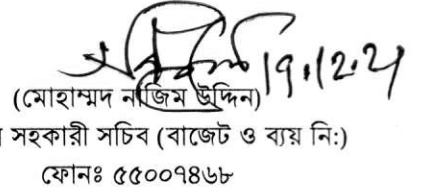 (মোহাম্মদ নাজিম উদ্দিন)
সহকারী সচিব (বাজেট ও ব্যয় নি:)
ফোনঃ ৫৫০০৭৪৬৮